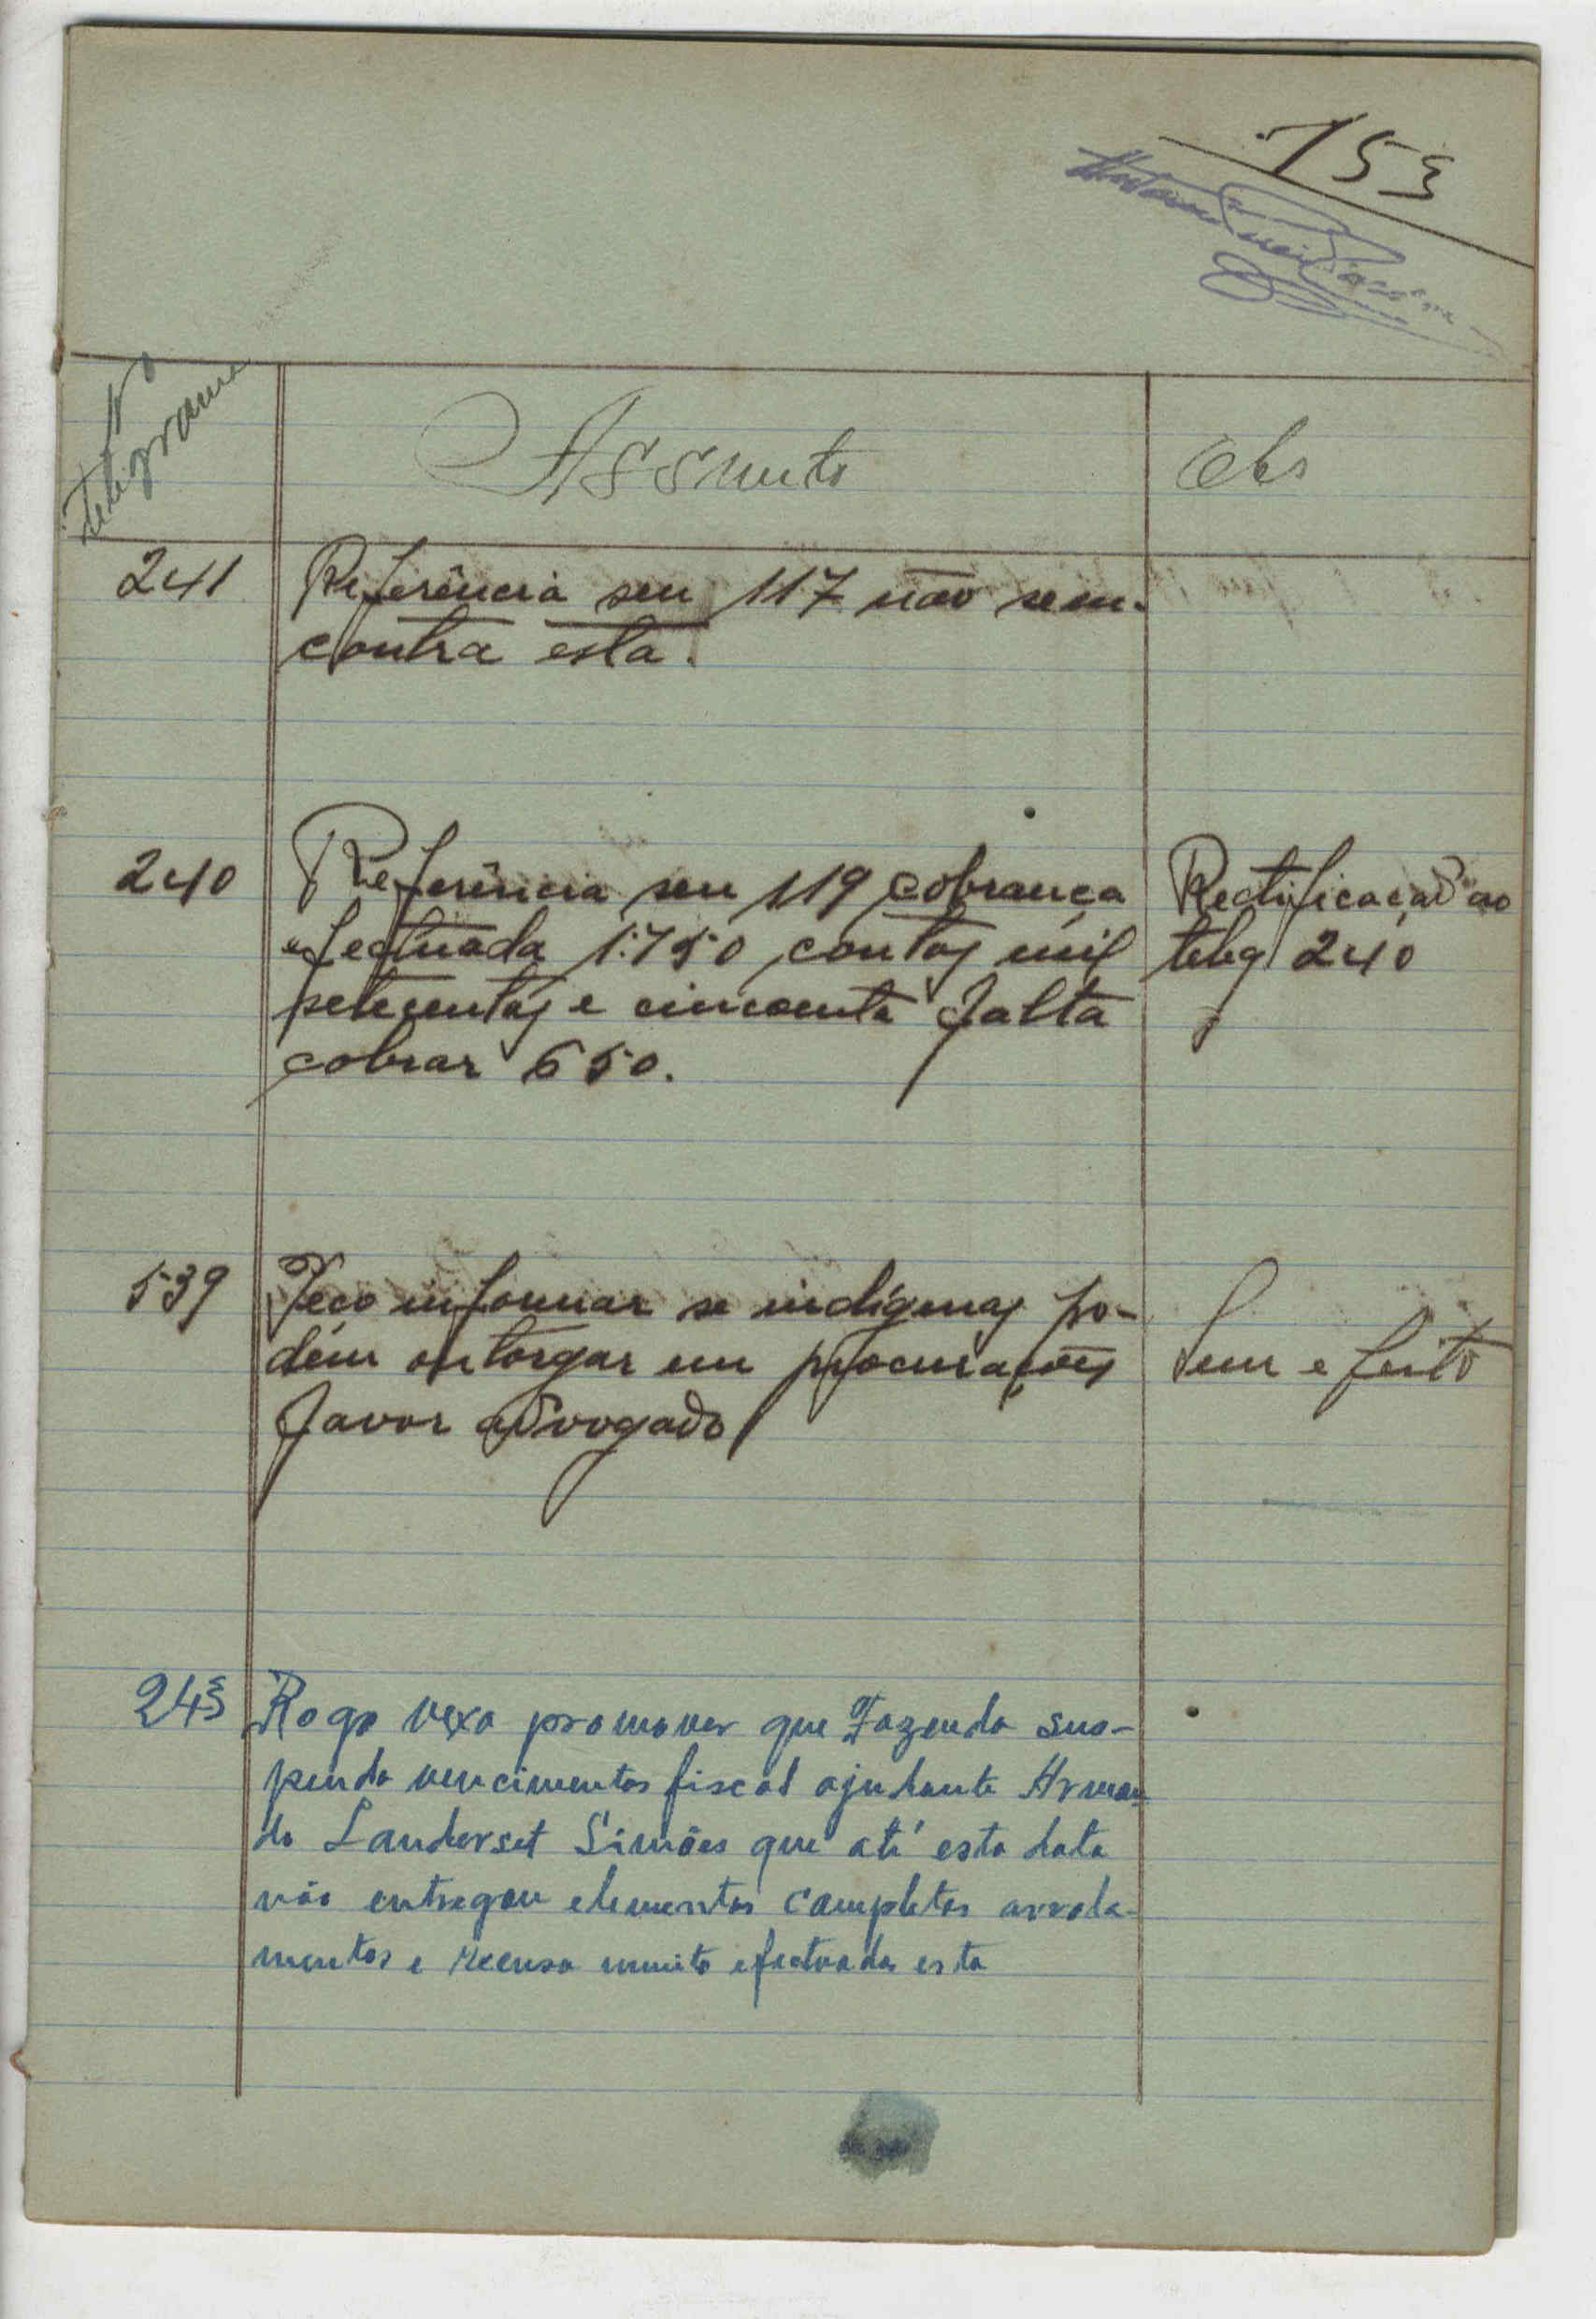 153
Nº
telegrama
Assunto
Obs
241
Referência seu 117 não sem-
contra esta.
240
Referência seu 119 cobrança
efectuada 1.750 contos mil
setecentos e cincoenta falta
cobrar 650.
Rectificação ao
teleg 240
539
Peço informar se indígenas po-
dém outorgar em procurações
favor advogado
Sem efeito
243
Rogo vexa promover que Fazenda sus-
penda vencimentos fiscal ajudante Arman-
do Landerset Simões que até esta data
não entregou elementos completos arrola-
mentos e recensamento efectuados esta